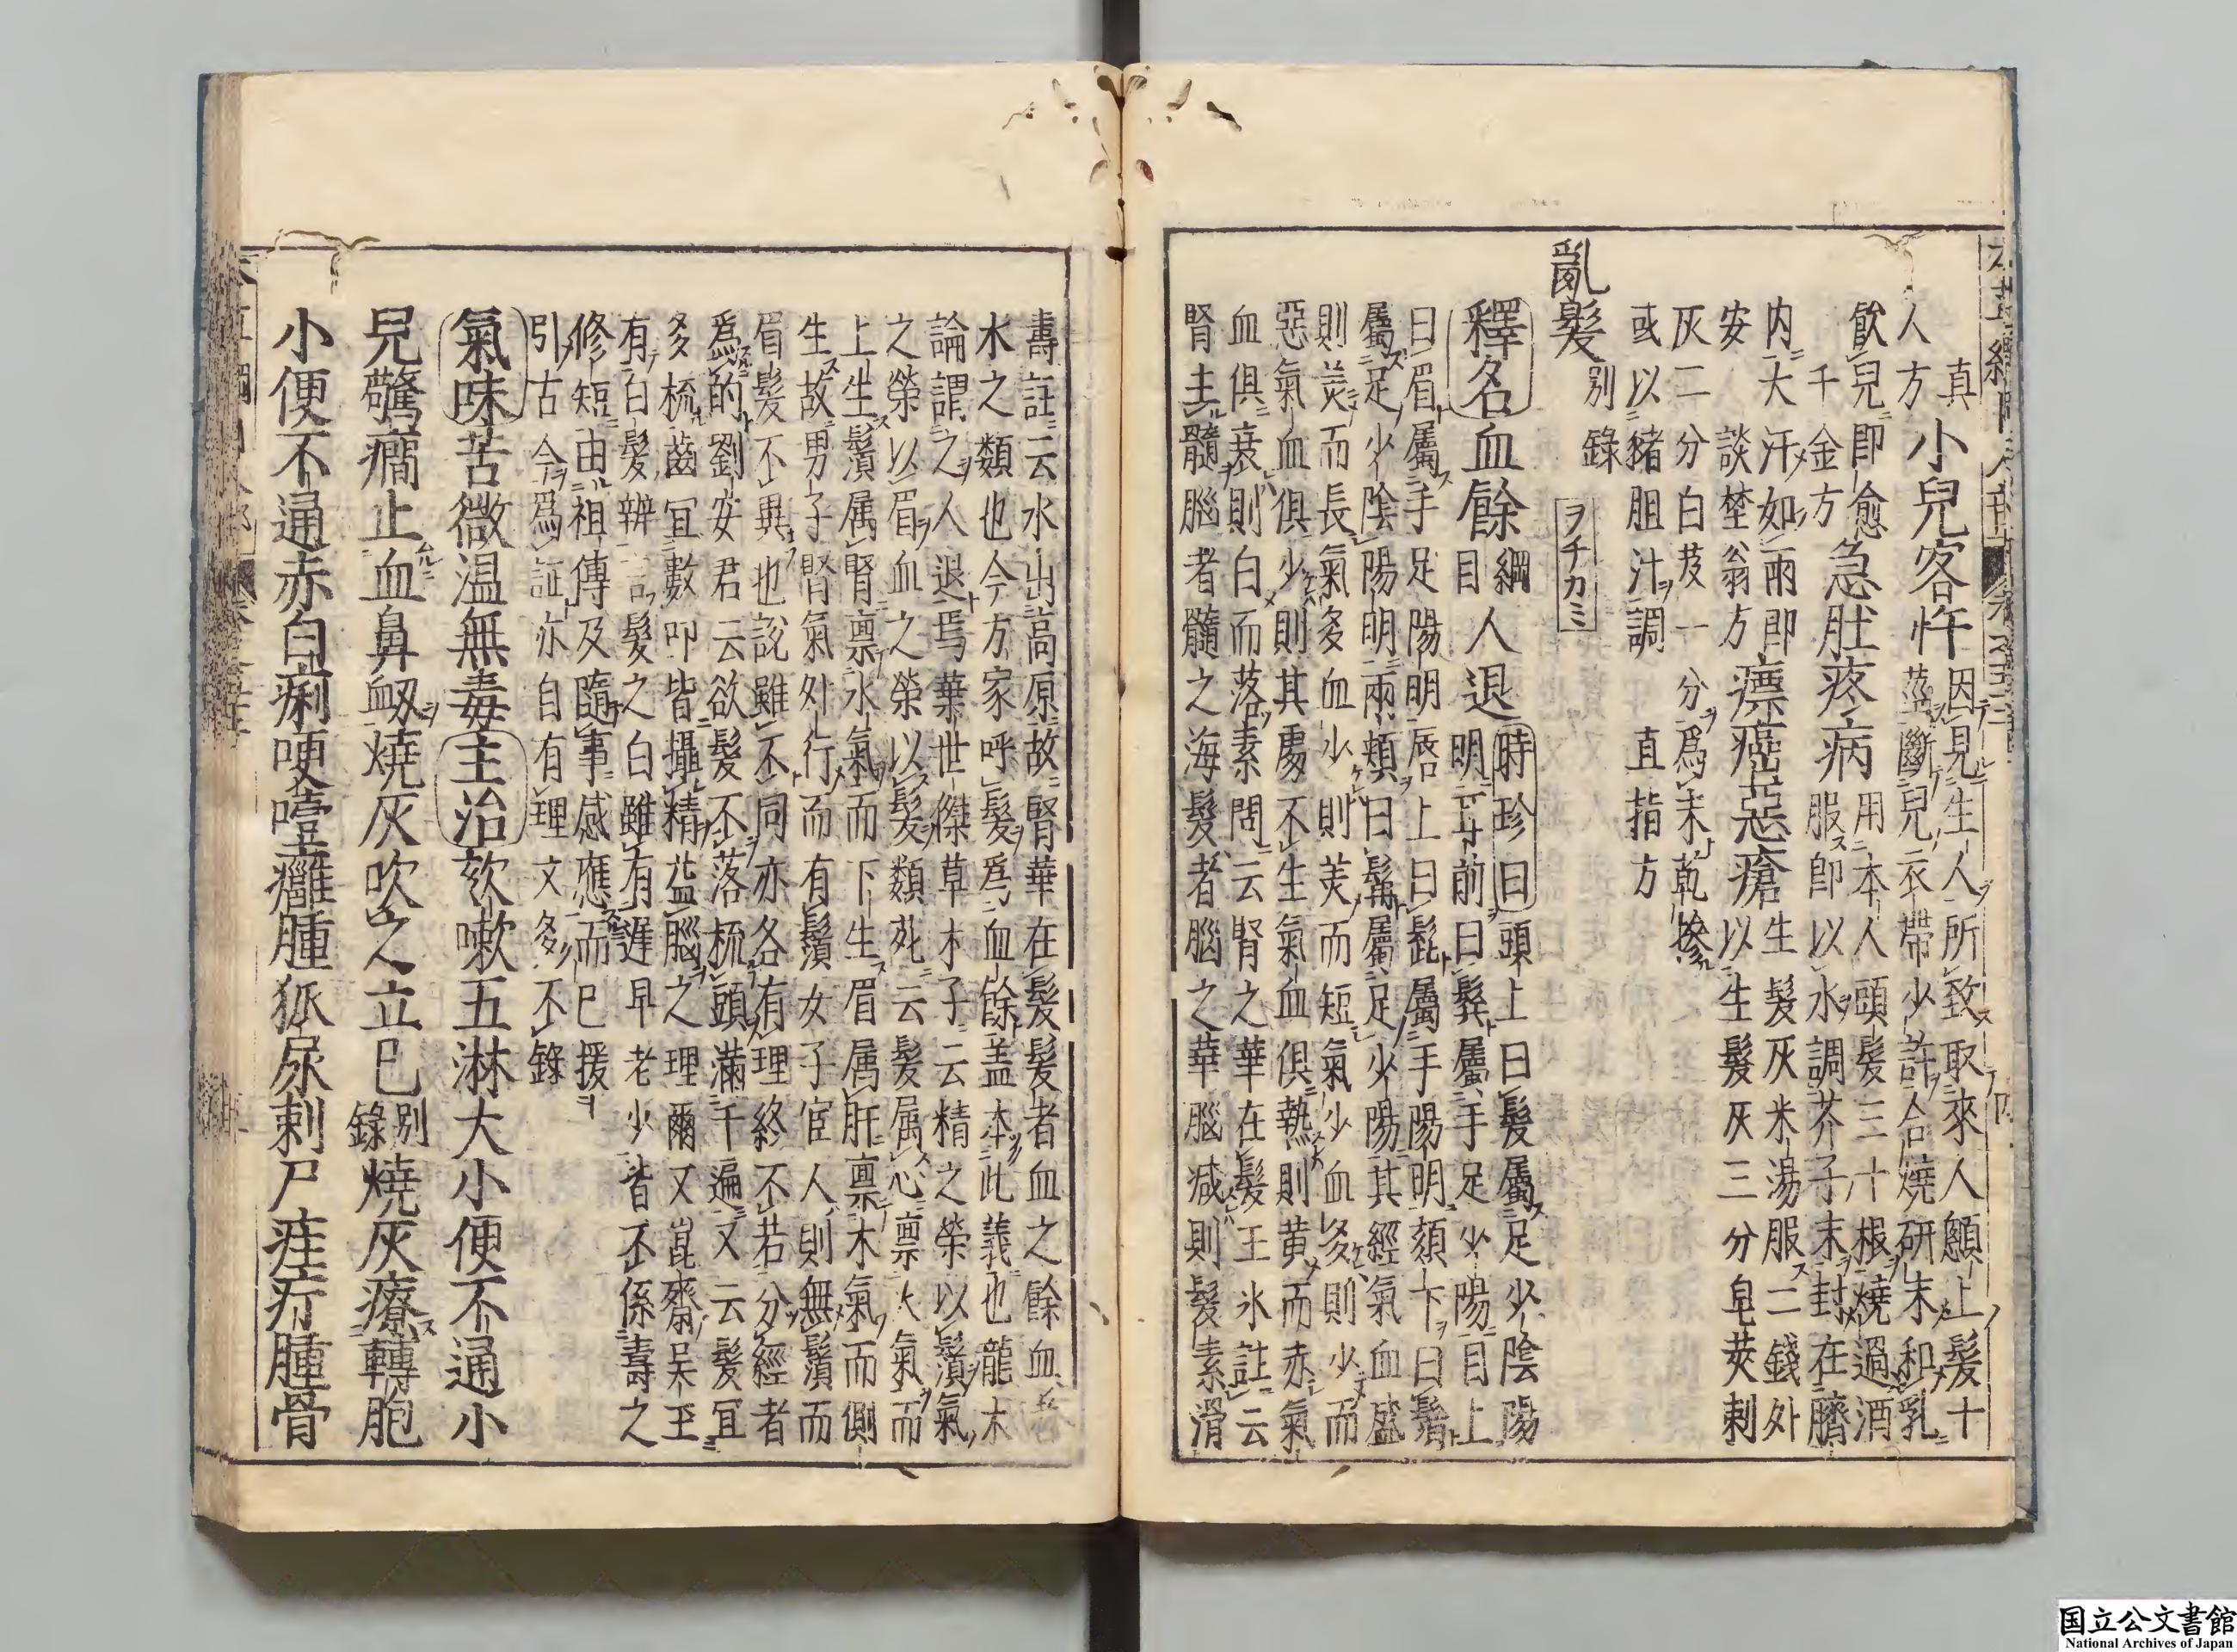 真
人方 小兒客忤 因見生人所致取來人顖上髮十
茎斷兒衣帶少許合燒研末和乳
飲兒即愈 急肚疼病 用本人頭髮三十根燒過酒
千金方 服即以水調芥子末封在臍
内大汗如雨即 瘭瘂惡瘡 生髮灰米湯服二錢外
安 談埜翁方 以生髮灰三分皂莢刺
灰二分白芨一分爲末乾摻
或以豬胆汁調 直指方
亂髮 別錄 ヲチカミ
釋名 血餘 綱目 人退 時珍曰頭上曰髮屬足少陰陽
明耳前曰鬓屬手足少陽目上
曰眉屬手足陽明唇上曰髭屬手陽明頦下曰鬚
屬足少陰陽明兩頰曰髯屬足少陽其經氣血盛
則美而長氣多血少則美而短氣少血多則少而
惡氣血俱少則其處不生氣血俱熱則黄而赤氣
血俱衰則白而落素問云腎之華在髮王氷註云
腎主髓腦者髓之海髮者腦之華腦减則髮素滑
壽註云水出高原故腎華在髮髮者血之餘血者
水之類也今方家呼髮爲血餘盖本此義也龍木
論謂之人退焉葉世傑草木子云精之榮以鬚氣
之榮以眉血之榮以髮類苑云髮属心禀火氣而
上生鬚属腎禀水氣而下生眉属肝禀木氣而側
生故男子腎氣外行而有鬚女子宦人則無鬚而
眉髮不異也說雖不同亦各有理終不若分經者
爲的劉安君云欲髮不落梳頭滿千遍又云髮宜
多梳齒宜數叩皆攝精益腦之理爾又崑齋吴玉
有白髮辨言髮之白雖有遲早老少皆不係壽之
修短由祖傳及隨事感應而已援
引古今爲証亦自有理文多不錄
氣味 苦微温無毒 主治 欬嗽五淋大小便不通小
兒驚癇止血鼻衂燒灰吹之立已 別錄 燒灰療轉胞
小便不通赤白痢哽噎癰腫狐尿刺尸疰疔腫骨
国立公文書館
National Archives of Japan